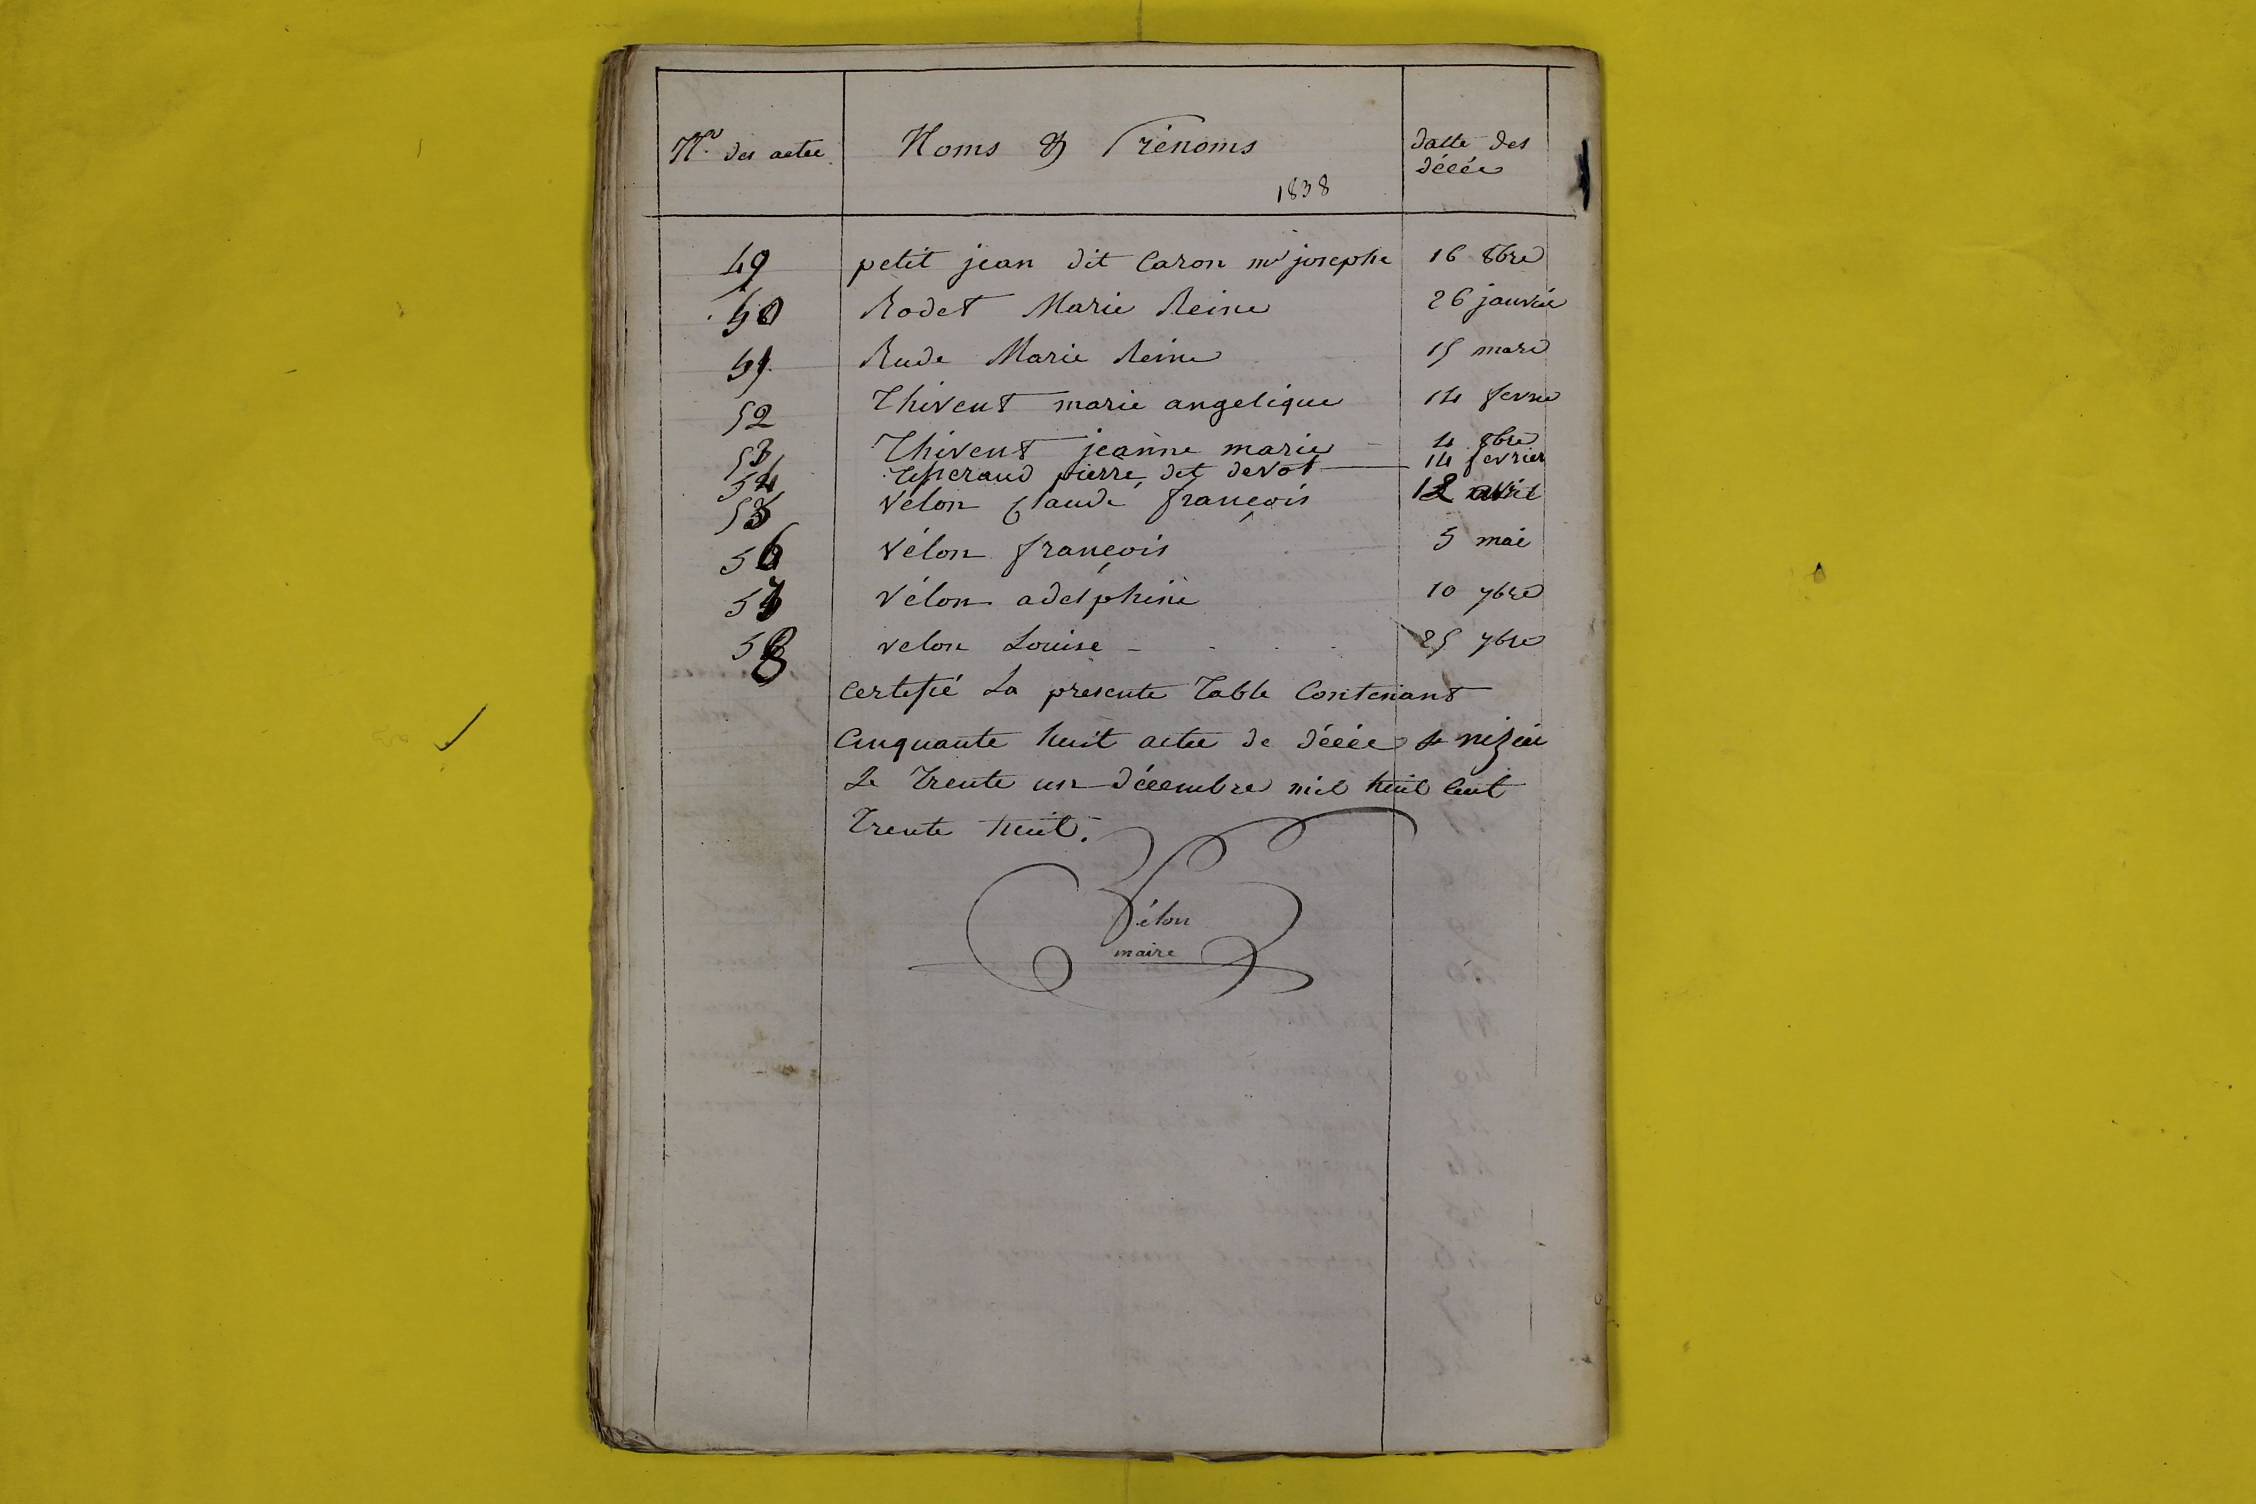 N.o des actee Noms & Prénoms datte des
décée
1838
49 petit jean dit Caron m.e josephe 16 8bre
50 Rodet Marie Reine 26 janvie
51 Rude Marie Reine 15 mare
52 Thivent marie angelique 14 fevrie
53 Thivent jeanne marie 4 8bre
54 pierre dit devot 14 fevrier
55 Vélon Claude françois 12 avril
56 Vélon françois 5 mai
57 Vélon adelphine 10 7bre
58 velon Louise 25 7bre
certifié La presente Table Contenant
Cinquante huit actee de décée St nizier
Le Trente un décembre mil huit Cent
Trente huit.
Vélon
maire